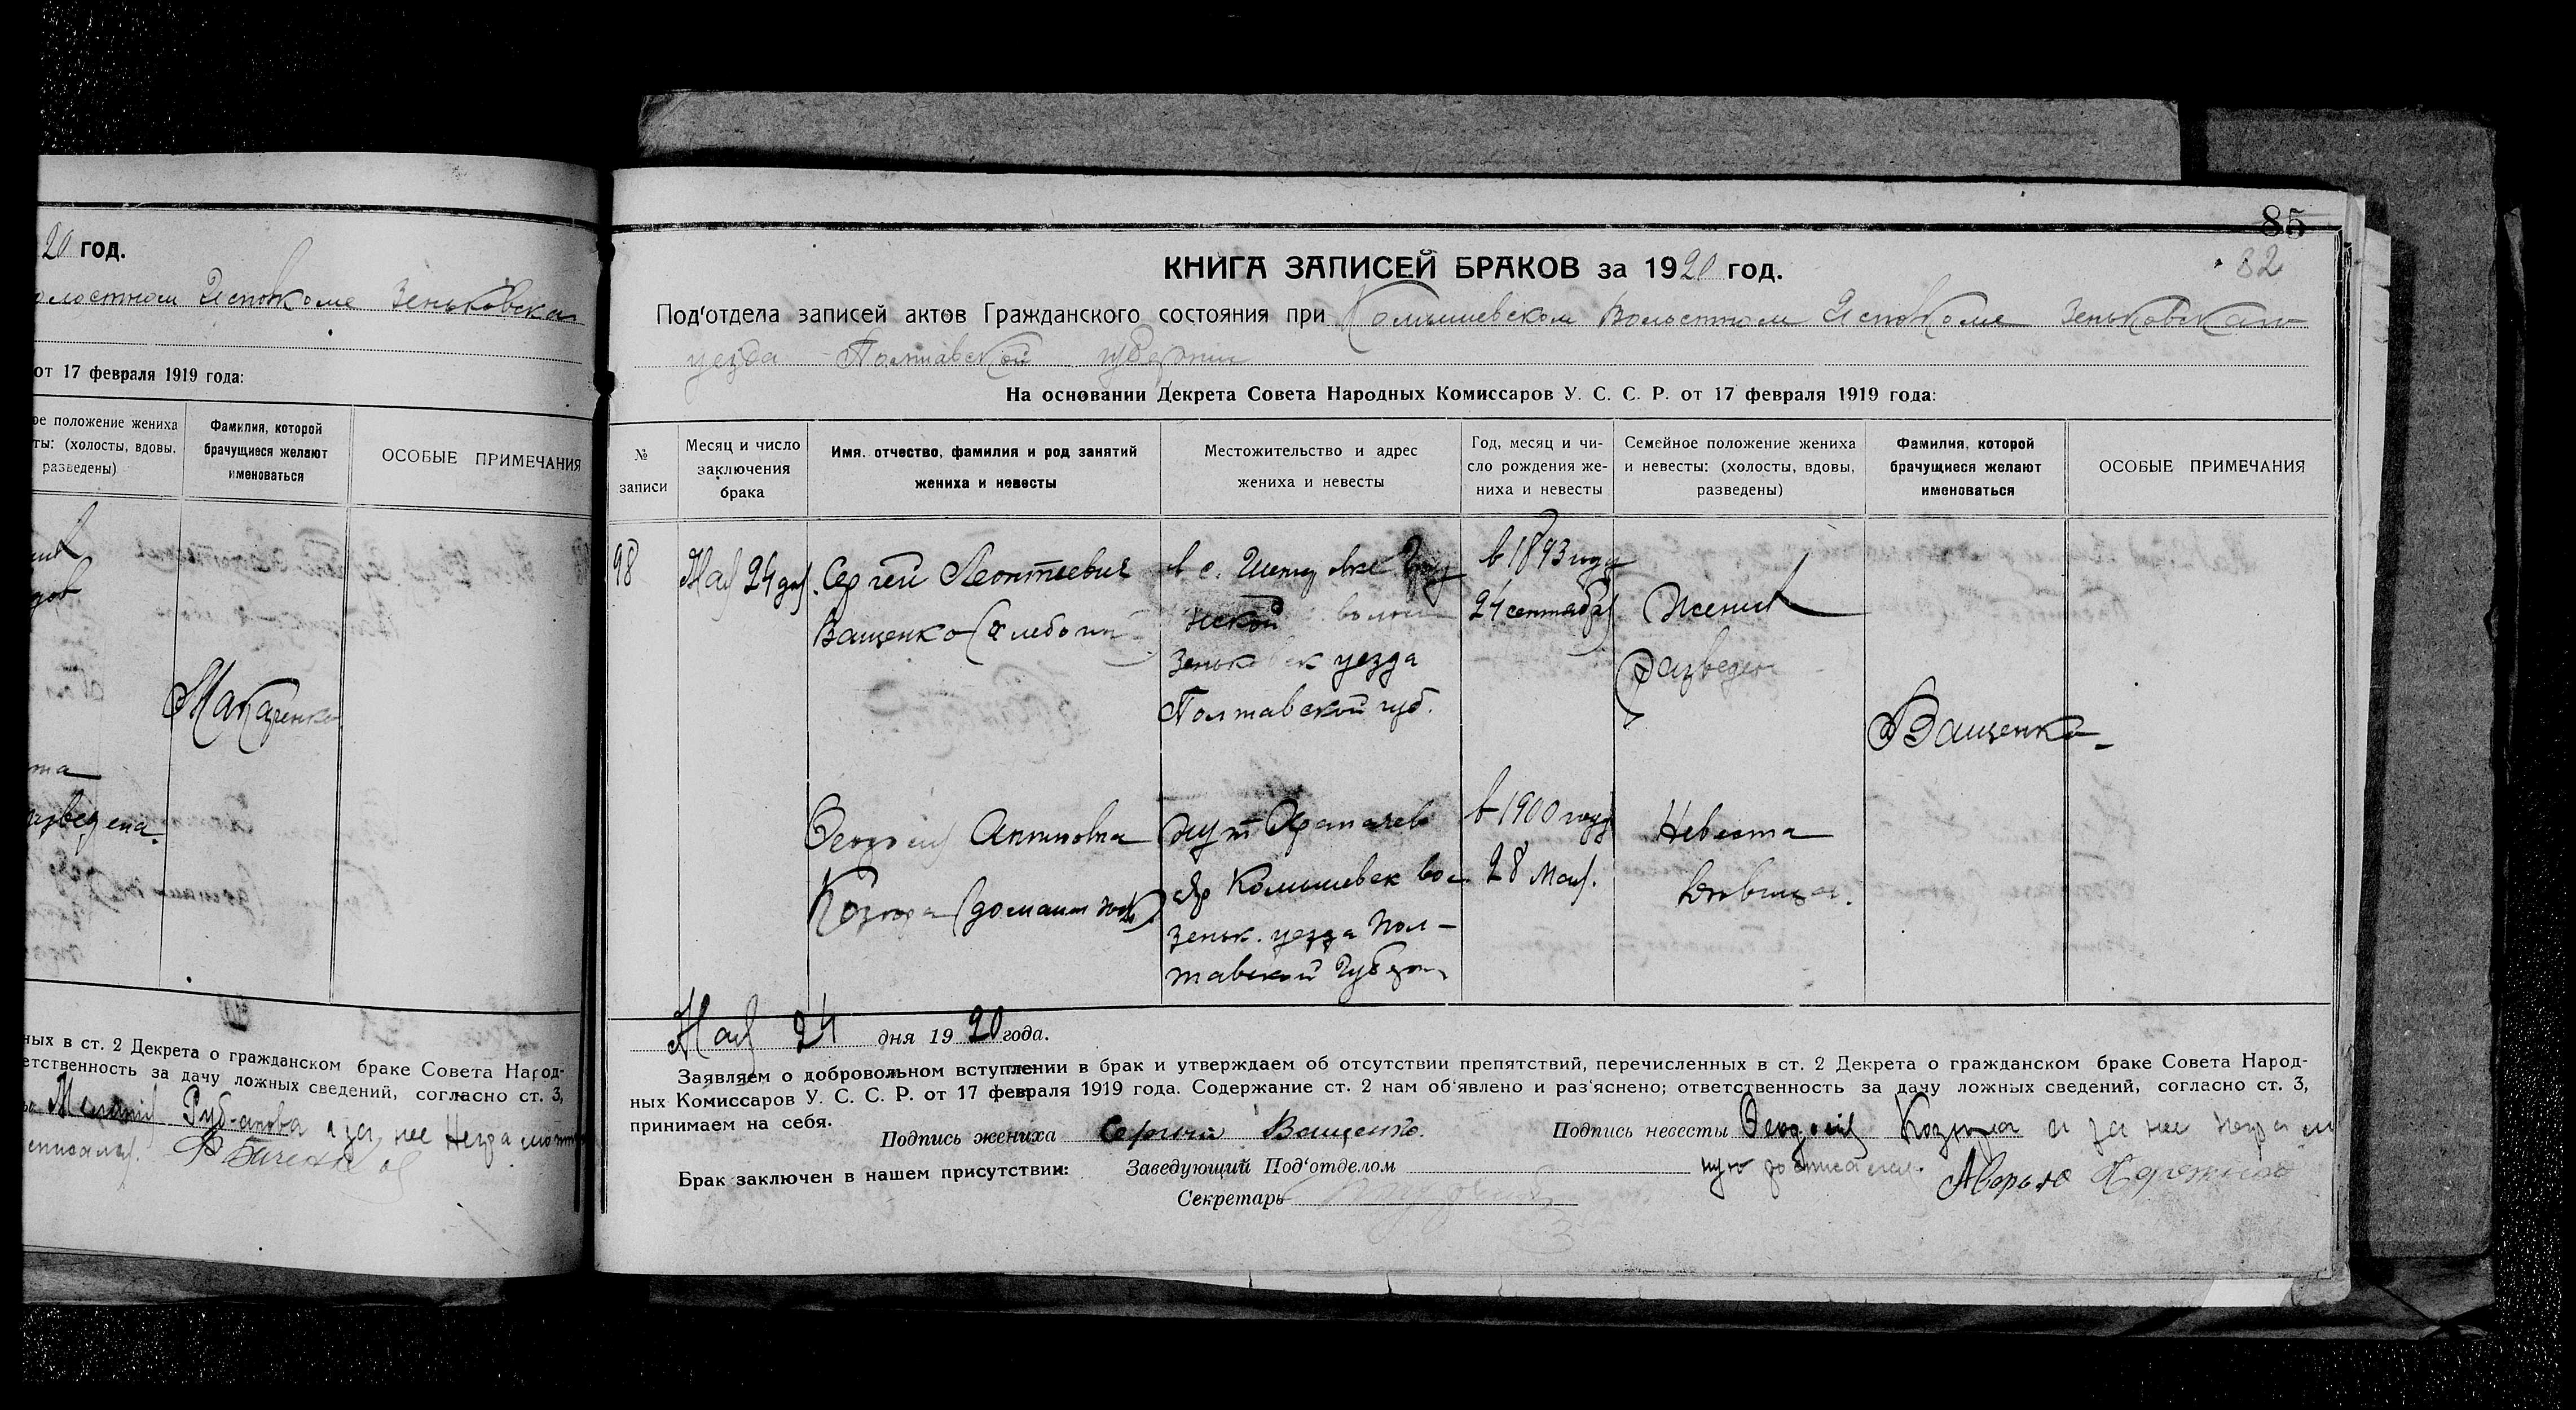 20 год.
Исполкоме Зеньковска
от 17 февраля 1919 года:
ое положение жениха
ты: (холосты, вдовы,
разведены)
Фамилия, которой
брачущиеся желают
именоваться
ОСОБЫЕ ПРИМЕЧАНИЯ
Макаренко
та
азведена.
ных в ст. 2 Декрета о гражданском браке Совета Народ-
етственность за дачу ложных сведений, согласно ст. 3,
а за нее Неграмотн
85
82
КНИГА ЗАПИСЕЙ БРАКОВ за 1920 год.
Под'отдела записей актов Гражданского состояния при Комышевском Волостном Исполкоме Зеньковскаго
уезда Полтавской губернии
На основании Декрета Совета Народных Комиссаров У. С. С. Р. от 17 февраля 1919 года:
№
записи
Месяц и число
заключения
брака
Имя, отчество, фамилия и род занятий
жениха и невесты
Местожительство и адрес
жениха и невесты
Год, месяц и чи-
сло рождения же-
ниха и невесты
Семейное положение жениха
и невесты: (холосты, вдовы,
разведены)
Фамилия, которой
брачущиеся желают
именоваться
ОСОБЫЕ ПРИМЕЧАНИЯ
98
Мая 24 дня.
Сергей Леонтьевич
Ващенко (хлебопаш
в с.
ской волости
Зеньковск уезда
Полтавской губ.
в 1893 году
24 сентября
Жених
Разведен
Ващенко
Феодосия Антиповна
Козюра (домашн хоз)
хут
Яр Комышевск вол
Зеньк. уезда Пол-
тавской Губерн
в 1900 году
28 Мая.
Невеста
девица.
Мая 24 дня 1920 года.
Заявляем о добровольном вступлении в брак и утверждаем об отсутствии препятствий, перечисленных в ст. 2 Декрета о гражданском браке Совета Народ-
ных Комиссаров У. С. С. Р. от 17 февраля 1919 года. Содержание ст. 2 нам об'явлено и раз'яснено; ответственность за дачу ложных сведений, согласно ст. 3,
принимаем на себя.
Подпись жениха Сергий Ващенко.
Подпись невесты Феодосия Козюра а за нее неграмот
ную росписался
Брак заключен в нашем присутствии:
Заведующий Под'отделом
Секретарь